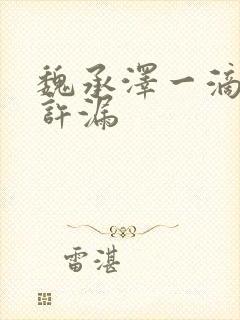 魏承澤一滴
許漏
雷湛